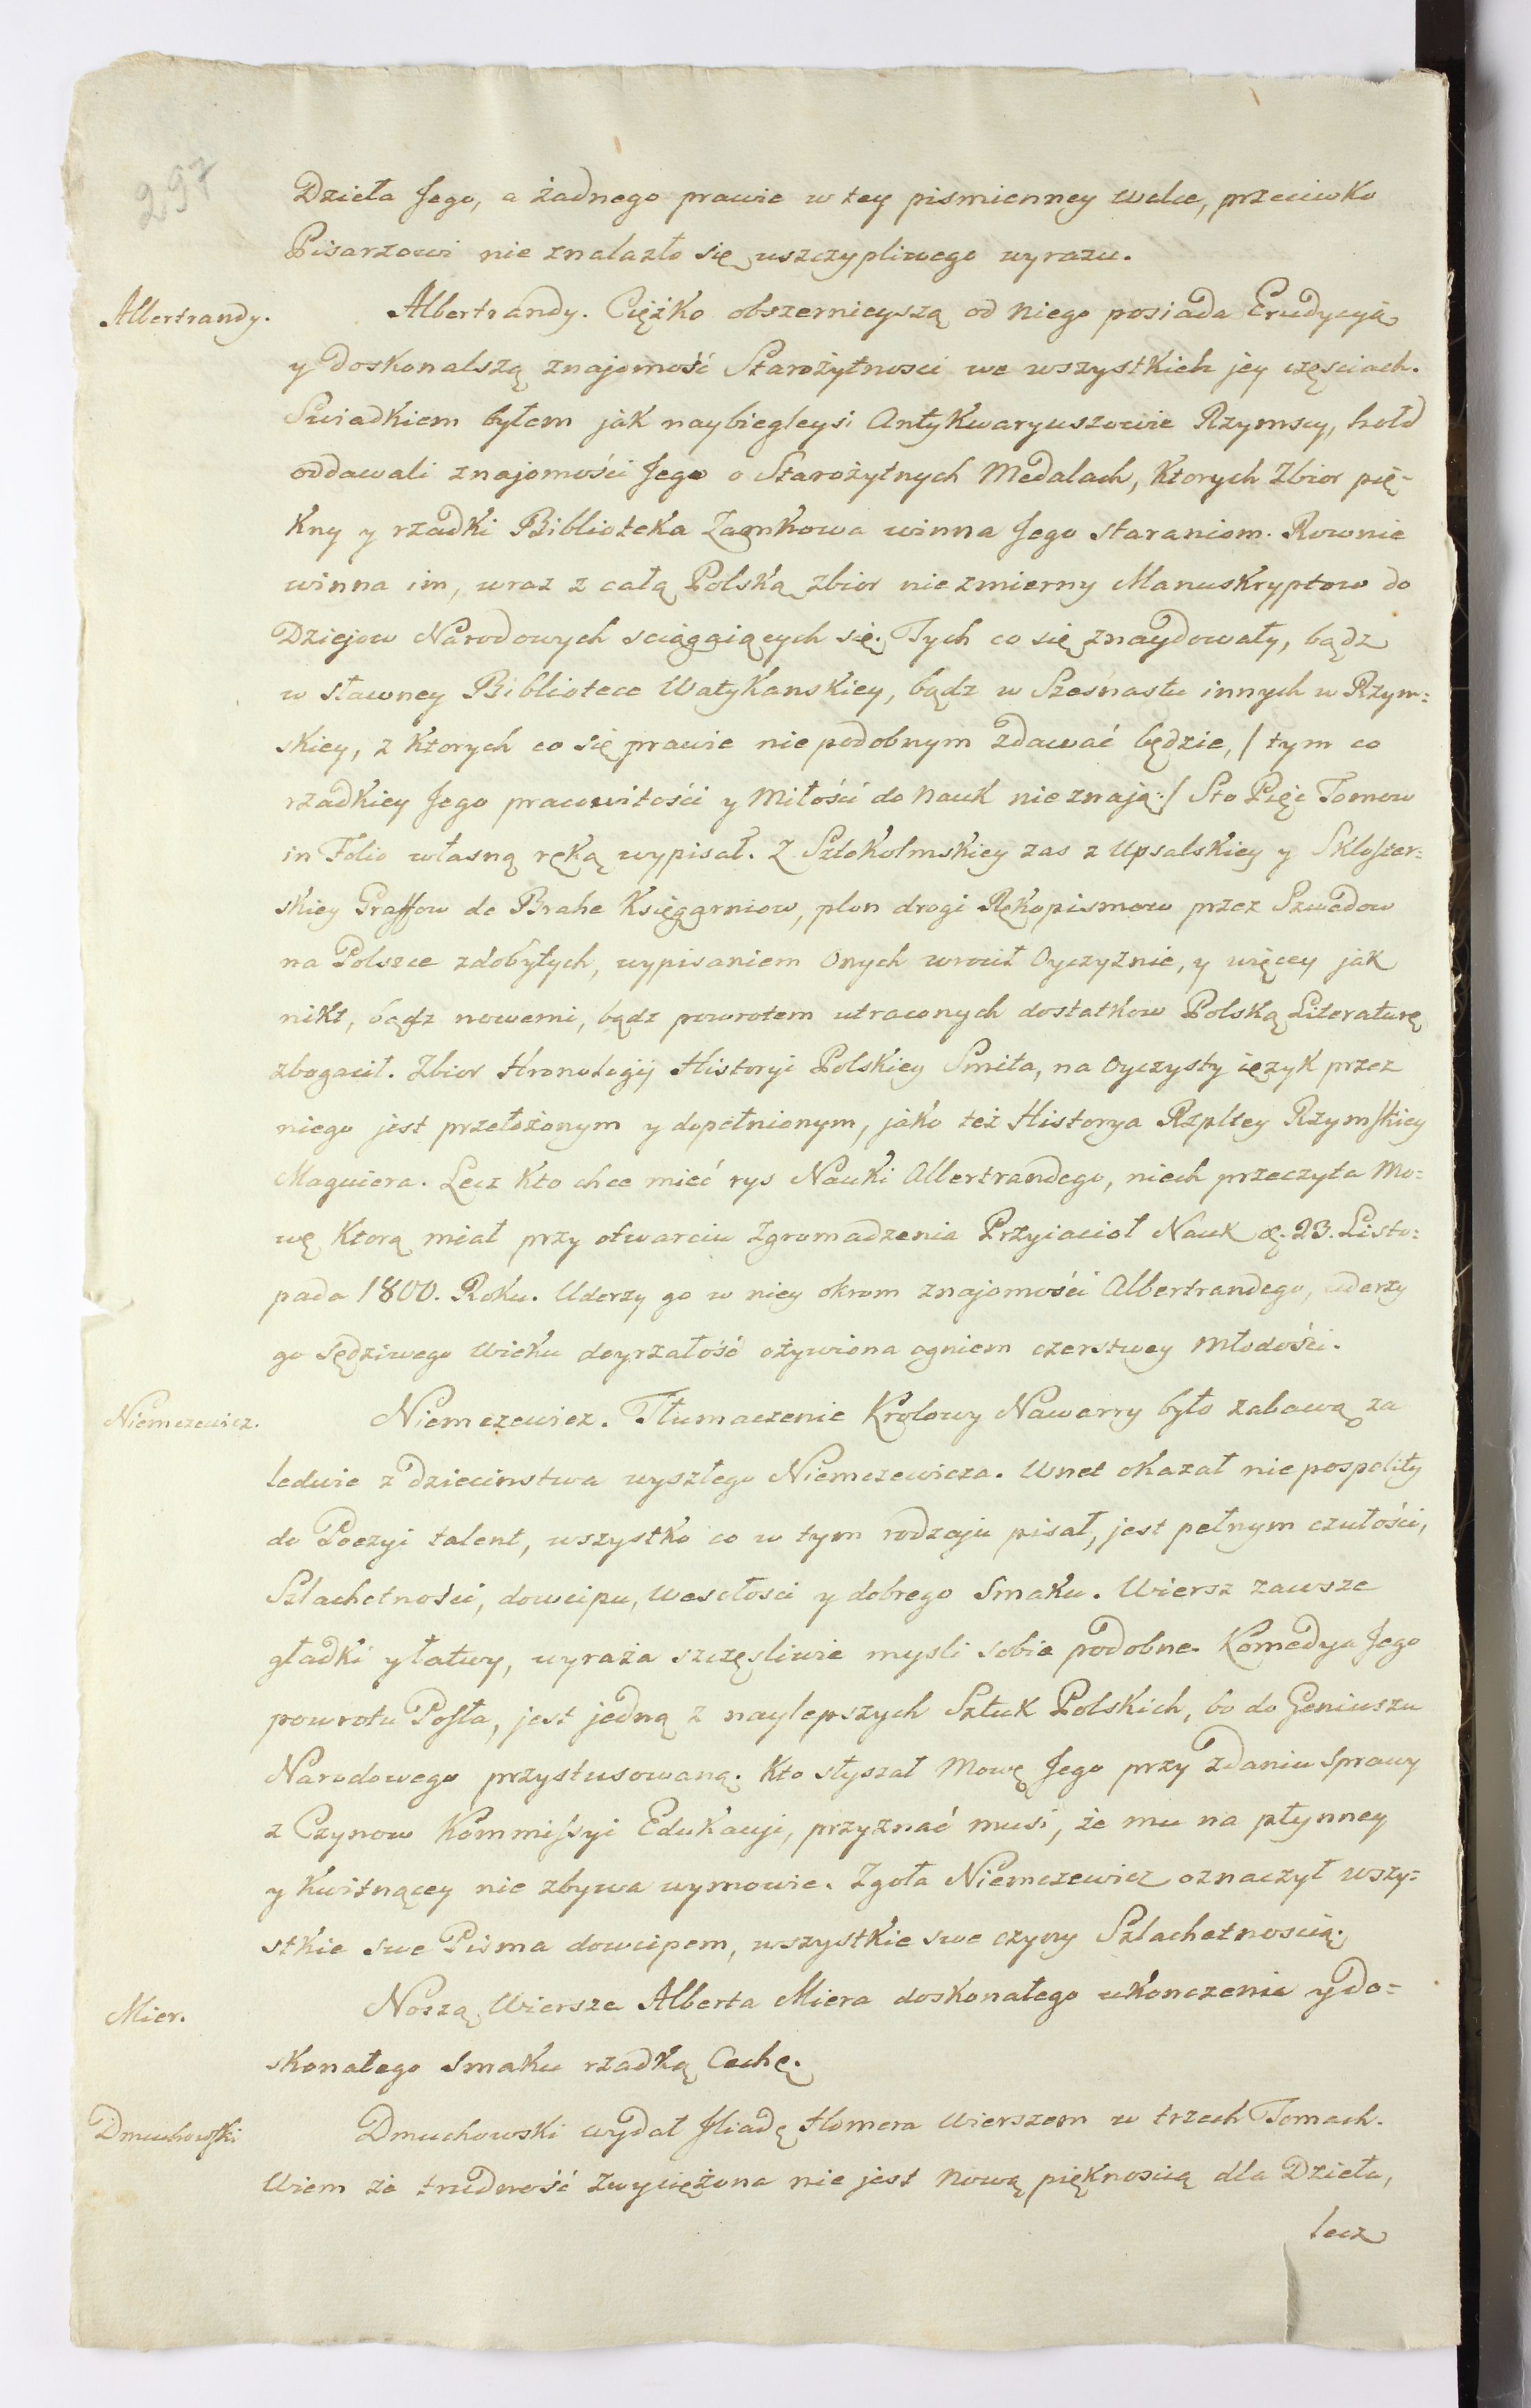 297
Dzieła Jego, a żadnego prawie w tey pismienney walce, przeciwko
Pisarzowi nie znalazło się uszczypliwego wyrazu.
Albertrandy.
Albertrandy. Ciężko obszernieyszą od niego posiada Erudycyją
y doskonalszą znajomość Starożytnosci we wszystkich jey częściach.
Swiadkiem byłem jak naybiegleysi Antykwaryuszowie Rzymscy, hołd
oddawali znajomości Jego o Starożytnych Medalach, Ktorych Zbior pię-
kny y rzadki Biblioteka Zamkowa winna Jego staraniom. Rownie
winna im, wraz z całą Polską zbior niezmierny Manuskryptow do
Dziejow Narodowych sciągaiących się. Tych co się znaydowały, bądz
w sławney Bibliotece Watykanskiey, bądz w Szesnastu innych w Rzym=
skiey, z Ktorych co się prawie niepodobnym zdawać będzie, / tym co
rzadkiey Jego pracowitości y Miłości do Nauk nieznają:/ Sto Pięć Tomow
in Folio własną ręką wypisał. Z Sztokolmskiey zas z Upsalskiey y Skloster=
skiey Graffow de Brahe Księgarniow, plon drogi Rękopismow przez Szwedow
na Polszce zdobytych, wypisaniem Onych wrocił Oyczyznie, y więcey jak
nikt, bądz nowemi, bądz powrotem utraconych dostatkow Polską Literaturę
zbogacił. Zbior Hronologij Historyi Polskiey Smita, na Oyczysty ięzyk przez
niego jest przełożonym y dopełnionym, jako też Historya Rzpltey Rzymskiey
Maguiera. Lecz Kto chce mieć rys Nauki Albertrandego, niech przeczyta Mo=
wę Ktorą miał przy otwarciu Zgromadzenia Przyiacioł Nauk d. 23. Listo=
pada 1800. Roku. Uderzy go w niey okrom znajomości Albertrandego, uderzy
go sędziwego Wieku doyrzałość ożywiona ogniem czerstwey Młodości.
Niemczewicz.
Niemczewicz. Tłumaczenie Krolowy Nawarry było zabawą za
ledwie z dziecinstwa wyszłego Niemczewicza. Wnet okazał niepospolity
do Poezyi talent, wszystko co w tym rodzaju pisał, jest pełnym czułości,
Szlachetności, dowcipu, Wesołosci y dobrego Smaku. Wiersz zawsze
gładki y łatwy, wyraża szczęsliwie mysli sobie podobne. Komedya Jego
powrotu Posła, jest jedną z naylepszych Sztuk Polskich, bo do Geniuszu
Narodowego przystusowaną. Kto słyszał Mowę Jego przy Zdaniu Sprawy
z Czynow Kommissyi Edukacyi, przyznać musi, że mu na płynney
y kwitnącey nie zbywa wymowie. Zgoła Niemczewicz oznaczył wszy=
stkie swe Pisma dowcipem, wszystkie swe czyny Szlachetnoscią.
Mier.
Noszą Wiersze Alberta Miera doskonałego ukonczenia y do=
skonałego Smaku rzadką Cechę.
Dmuchowski
Dmuchowski wydał Iliadę Homera Wierszem w trzech Tomach.
Wiem że trudność zwyciężona nie jest Nową pięknoscią dla Dzieła,
lecz